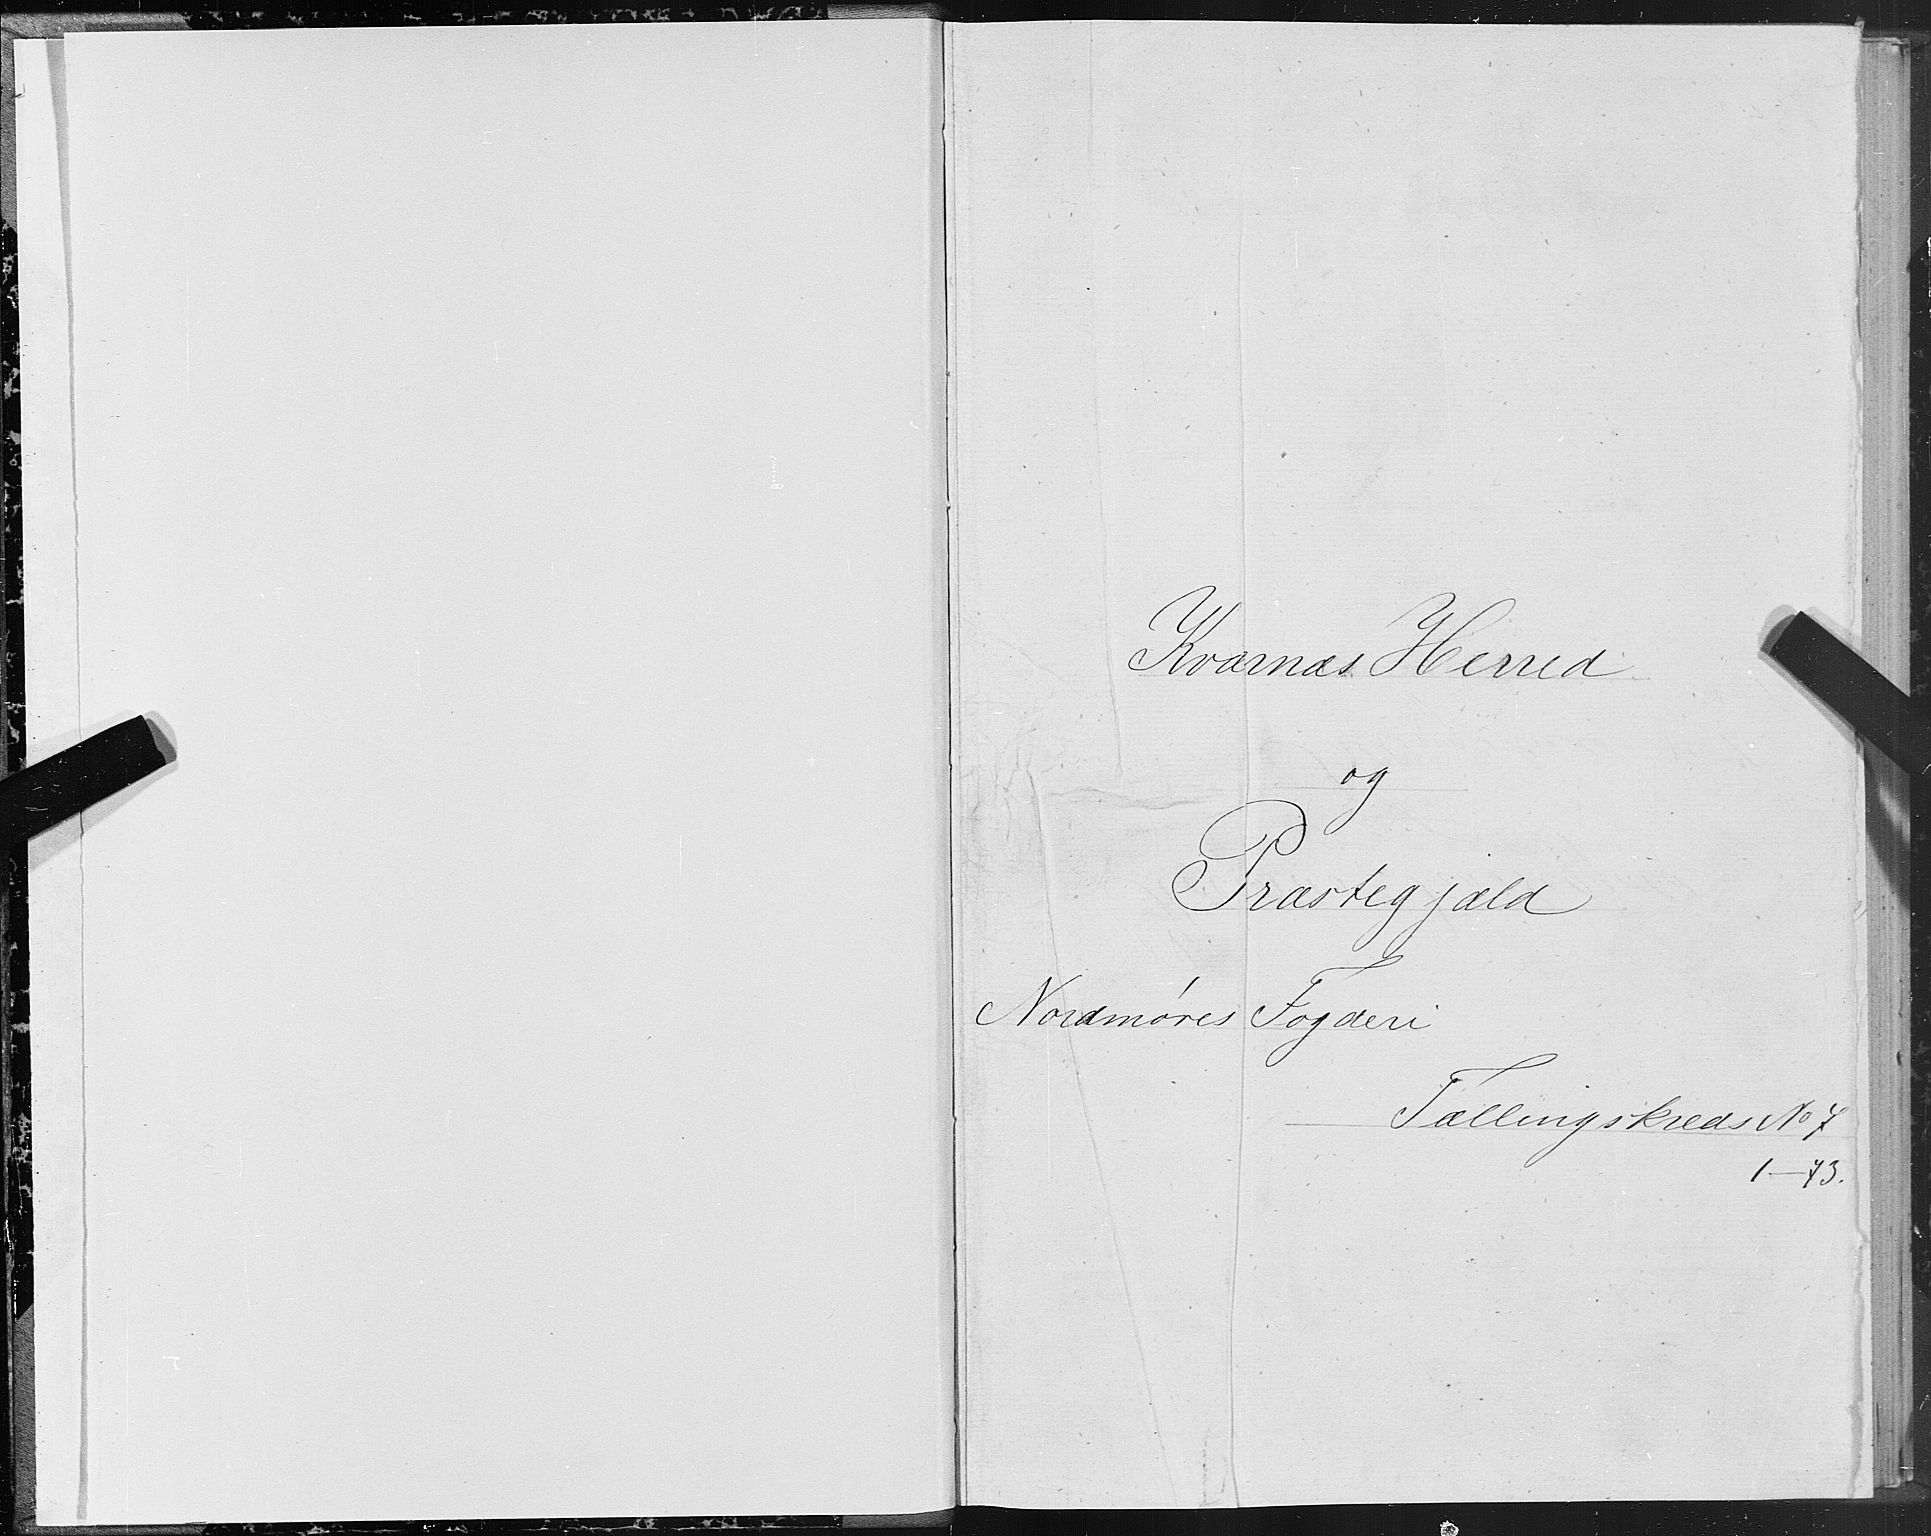 Kvarnæs Herred
og
Præstegjæld
Nordmøres Fogderi
Tællingskreds No 7
1—73.